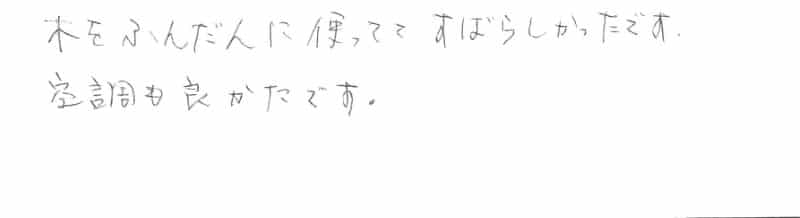 木をふんだんに使っててすばらしかったです.
空調も良かたです。